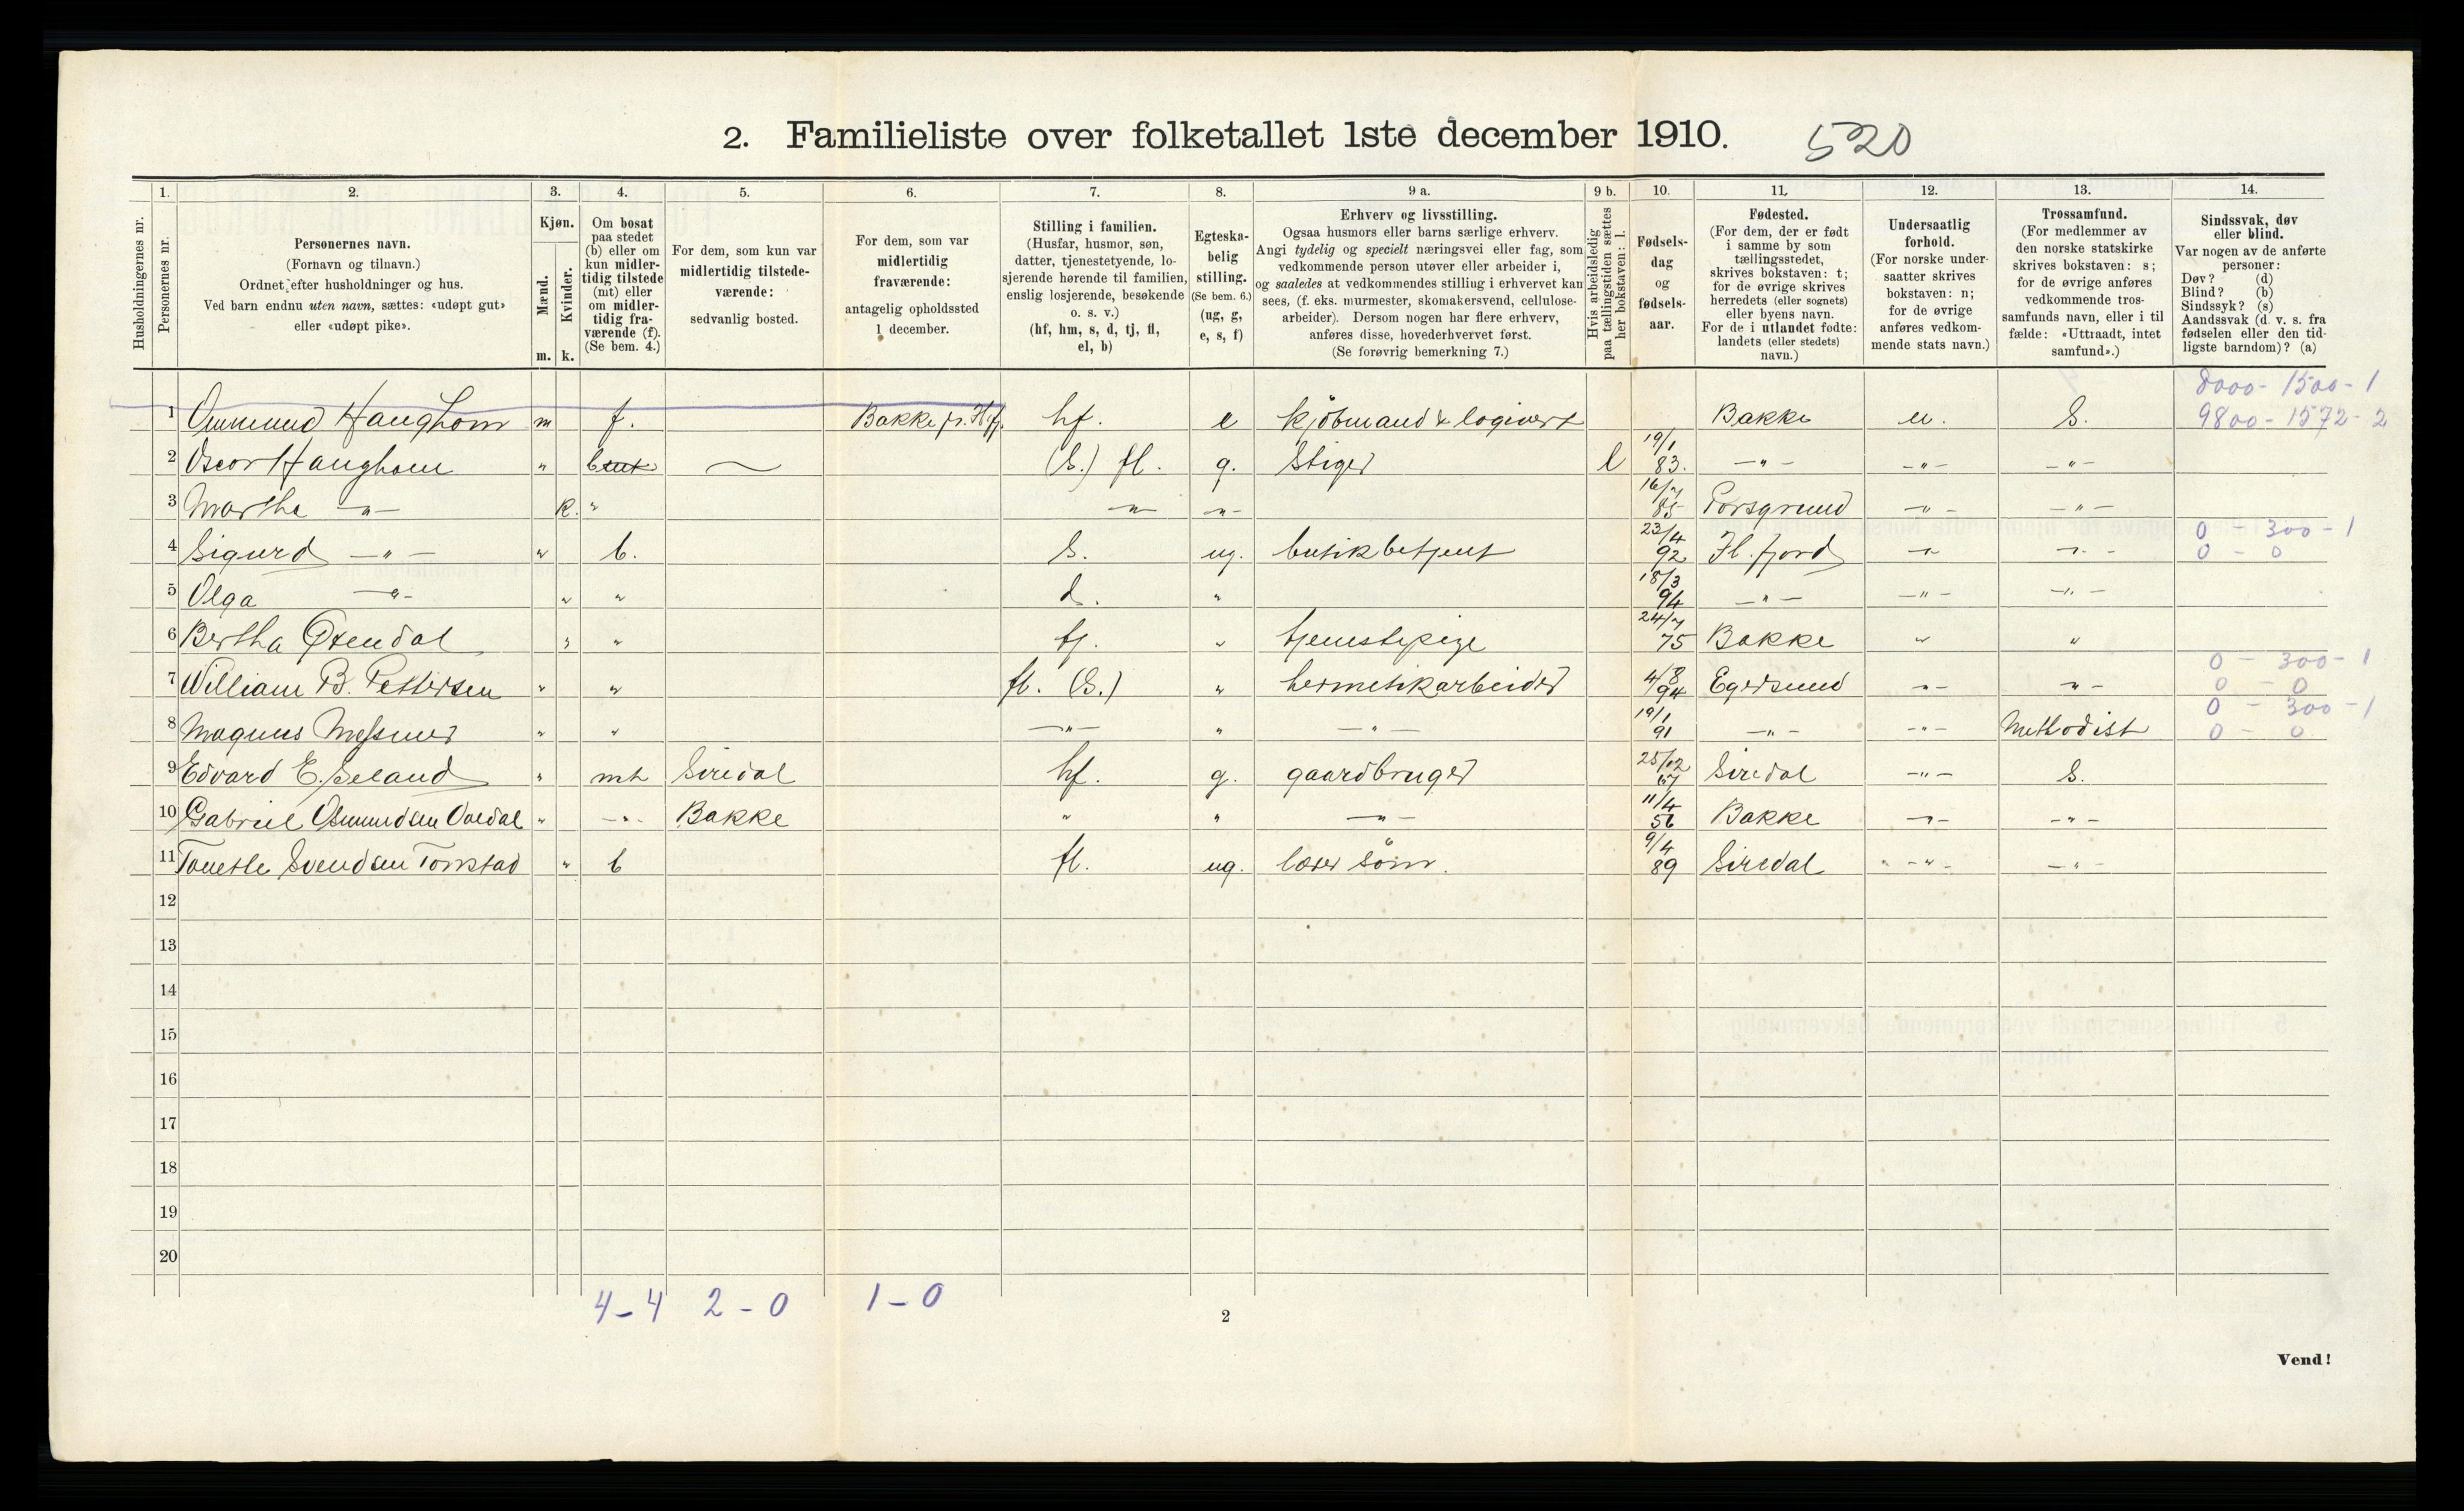 2. Familieliste over folketallet 1ste december 1910. 520
1. 2. 3. 4. 5. 6. 7. 8. 9 a. 9 b. 10. 11. 12. 13. 14.
Husholdningernes nr.
Personernes nr.
Personernes navn.
(Fornavn og tilnavn.)
Ordnet efter husholdninger og hus.
Ved barn endnu uten navn, sættes: «udøpt gut»
eller «udøpt pike».
Kjøn.
Mænd.
Kvinder.
m. k.
Om bosat
paa stedet
(b) eller om
kun midler-
tidig tilstede
(mt) eller
om midler-
tidig fra-
værende (f).
(Se bem. 4.)
For dem, som kun var
midlertidig tilstede-
værende:
sedvanlig bosted.
For dem, som var
midlertidig
fraværende:
antagelig opholdssted
1 december.
Stilling i familien.
(Husfar, husmor, søn,
datter, tjenestetyende, lo-
sjerende hørende til familien,
enslig losjerende, besøkende
o. s. v.)
(hf, hm, s, d, tj, fl,
el, b)
Egteska-
belig
stilling.
(Se bem. 6.)
(ug, g,
e, s, f)
Erhverv og livsstilling.
Ogsaa husmors eller barns særlige erhverv.
Angi tydelig og specielt næringsvei eller fag, som
vedkommende person utøver eller arbeider i,
og saaledes at vedkommendes stilling i erhvervet kan
sees, (f. eks. murmester, skomakersvend, cellulose-
arbeider). Dersom nogen har flere erhverv,
anføres disse, hovederhvervet først.
(Se forøvrig bemerkning 7.)
Hvis arbeidsledig
paa tællingstiden sættes
her bokstaven: l.
Fødsels-
dag
og
fødsels-
aar.
Fødested.
(For dem, der er født
i samme by som
tællingsstedet,
skrives bokstaven: t;
for de øvrige skrives
herredets (eller sognets)
eller byens navn.
For de i utlandet fødte:
landets (eller stedets)
navn.)
Undersaatlig
forhold.
(For norske under-
saatter skrives
bokstaven: n;
for de øvrige
anføres vedkom-
mende stats navn.)
Trossamfund.
(For medlemmer av
den norske statskirke
skrives bokstaven: s;
for de øvrige anføres
vedkommende tros-
samfunds navn, eller i til
fælde: «Uttraadt, intet
samfund».)
Sindssvak, døv
eller blind.
Var nogen av de anførte
personer:
Døv? (d)
Blind? (b)
Sindssyk? (s)
Aandssvak (d. v. s. fra
fødselen eller den tid-
ligste barndom)? (a)
8000 - 1500 - 1
1 Ommund Haughom m f. Bakke pr. Fl.fj. hf. e kjöbmand & logivert Bakke n. S. 9800 - 1572 - 2
2 Oscar Haughom " b (S.) fl. g. Stiger l 19/1 83. -"- -"- -"-
3 Martha -"- k. " -"- -"- 16/7 85 Porsgrund -"- -"-
4 Sigurd -"- " b. S. ug. butikbetjent 23/4 92 Fl. fjord -"- -"- 0 - 300 - 1
0 - 0
5 Olga -"- " " d. " 18/3 94 -"- -"- -"-
6 Bertha Øxendal " " tj. " tjenestepige 24/7 75 Bakke " "
7 William B. Pettersen " " fl. (S.) " hermetikarbeider 4/8 94 Egersund -"- -"- 0 - 300 - 1
0 - 0
8 Magnus Messner " " -"- " -"- 19/1 91 -"- -"- Methodist 0 - 300 - 1
0 - 0
9 Edvard E. Seland " mt Siredal hf. g. gaardbruger 25/12 67 Siredal -"- S.
10 Gabriel Osmundsen " -"- Bakke " " -"- 11/4 56 Bakke -"- -"-
11 Tonette Svendsen Tonstad " b fl. ug. lærer söm. 9/4 89 Siredal -"- -"-
12
13
14
15
16
17
18
19
20
4 - 4 2 - 0 1 - 0
2
Vend!